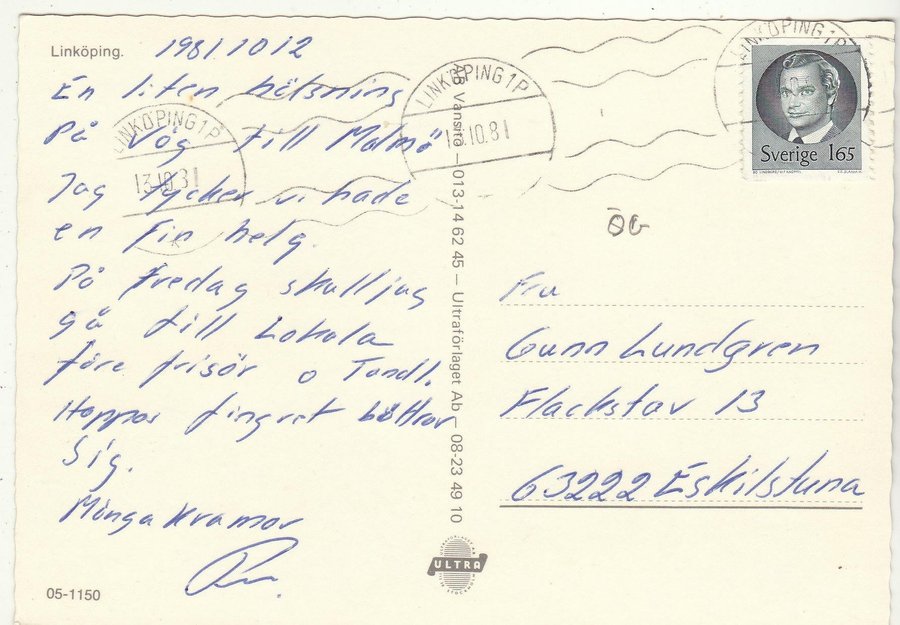 Linköping. 1981 10 12
En liten hälsning
På väg till Malmö
Jag tycker vi hade
en fin helg.
På fredag skull jag
gå till Lokala
före frisör o Tandl.
Hoppas fingret bättrar
sig.
Många kramar
05-1150
AB Vansito — 013-14 62 45 — Ultraförlaget Ab — 08-23 49 10
ULTRA
LINKÖPING 1P
13.10.81
LINKÖPING 1P
13.10.81
LINKÖPING 1P
Sverige 165
ÖG
Fru
Gunn Lundgren
Flackstav 13
63222 Eskilstuna